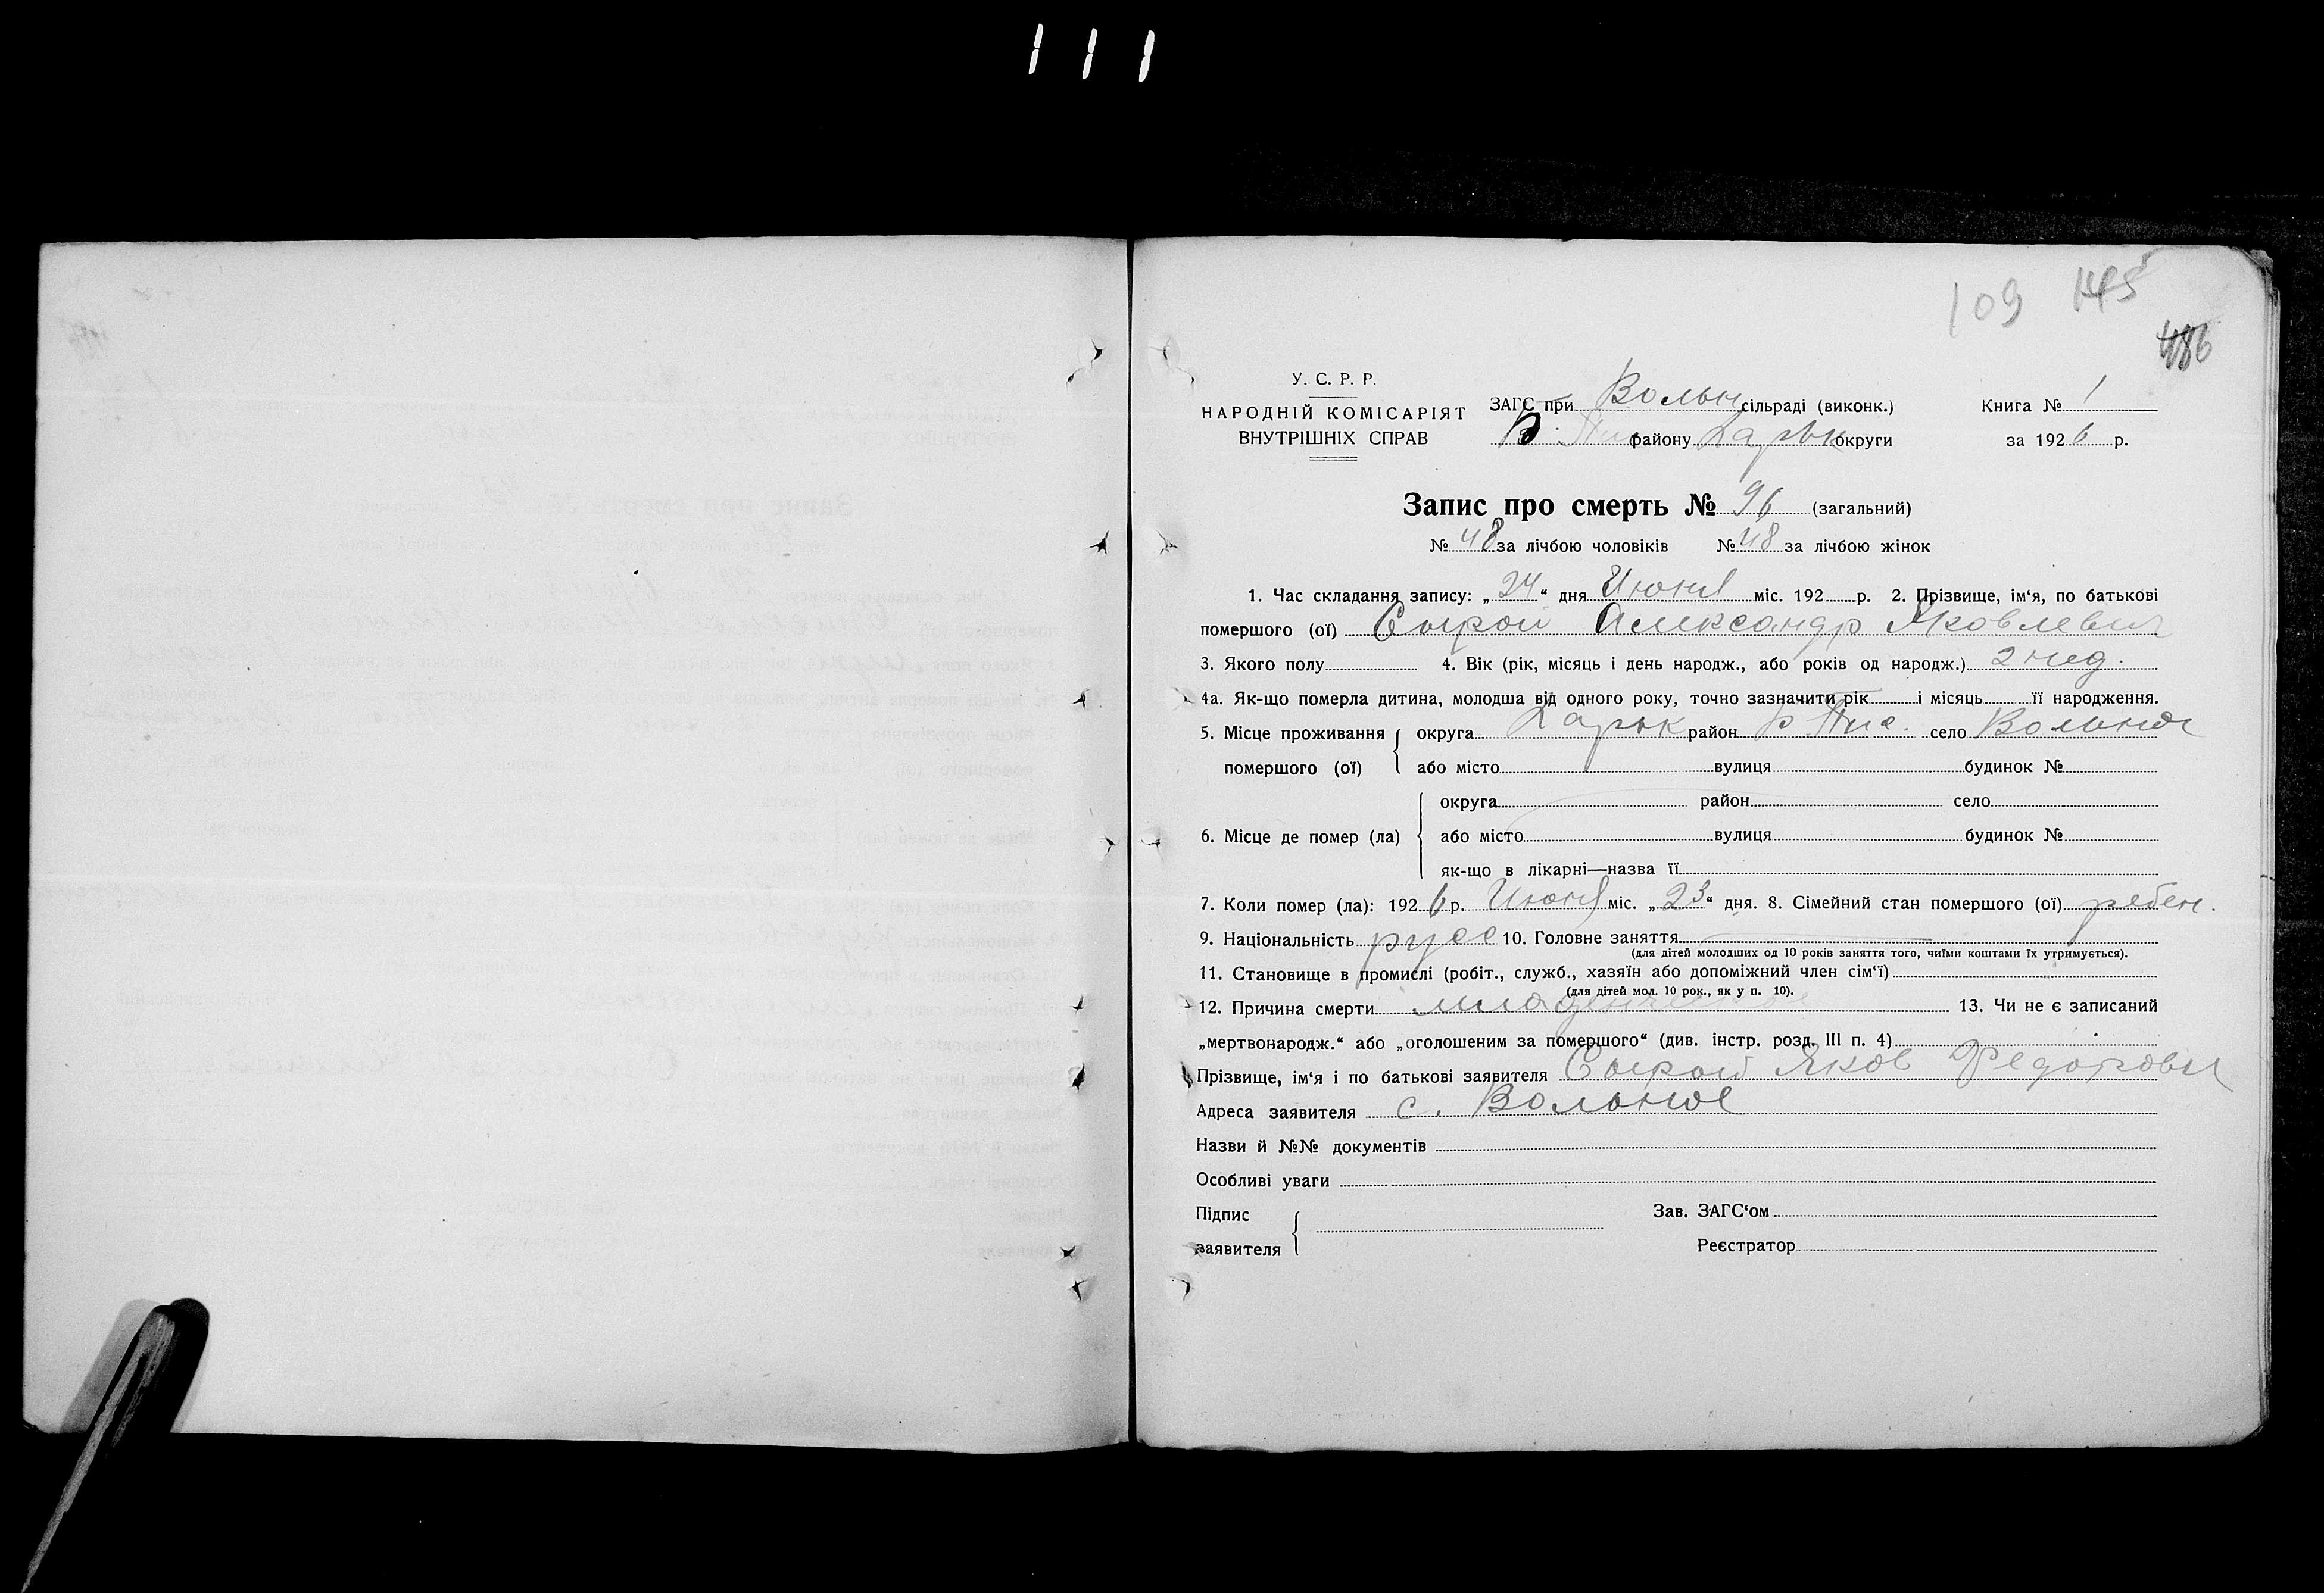 111
109 145
486
У. С. Р. Р.
НАРОДНІЙ КОМІСАРІЯТ
ВНУТРІШНІХ СПРАВ
ЗАГС при Вольн сільраді (виконк.)
В. Пис району Харьк округи
Книга № 1
за 1926 р.
Запис про смерть № 96 (загальний)
№ 48 за лічбою чоловіків № 48 за лічбою жінок
1. Час складання запису: „24“ дня Июня міс. 192 р. 2. Прізвище, ім‘я, по батькові
помершого (ої) Сырой Александр Яковлевич
3. Якого полу 4. Вік (рік, місяць і день народж., або років од народж.) 2 нед.
4а. Як-що померла дитина, молодша від одного року, точно зазначити рік і місяць її народження.
5. Місце проживання помершого (ої) { округа Харьк район Пис. село Вольное
або місто вулиця будинок №
6. Місце де помер (ла) { округа район село
або місто вулиця будинок №
як-що в лікарні—назва її
7. Коли помер (ла): 1926 р. Июня міс. „23“ дня. 8. Сімейний стан помершого (ої) ребен.
9. Національність русс 10. Головне заняття
(для дітей молодших од 10 років заняття того, чиїми коштами їх утримується).
11. Становище в промислі (робіт., служб., хазяїн або допоміжний член сім‘ї)
(для дітей мол. 10 рок., як у п. 10).
12. Причина смерти младенческая 13. Чи не є записаний
„мертвонародж.“ або „оголошеним за помершого“ (див. інстр. розд. III п. 4)
Прізвище, ім‘я і по батькові заявителя Сырой Яков Федорович
Адреса заявителя с. Вольное
Назви й №№ документів
Особливі уваги
Підпис заявителя {
Зав. ЗАГС‘ом
Реєстратор